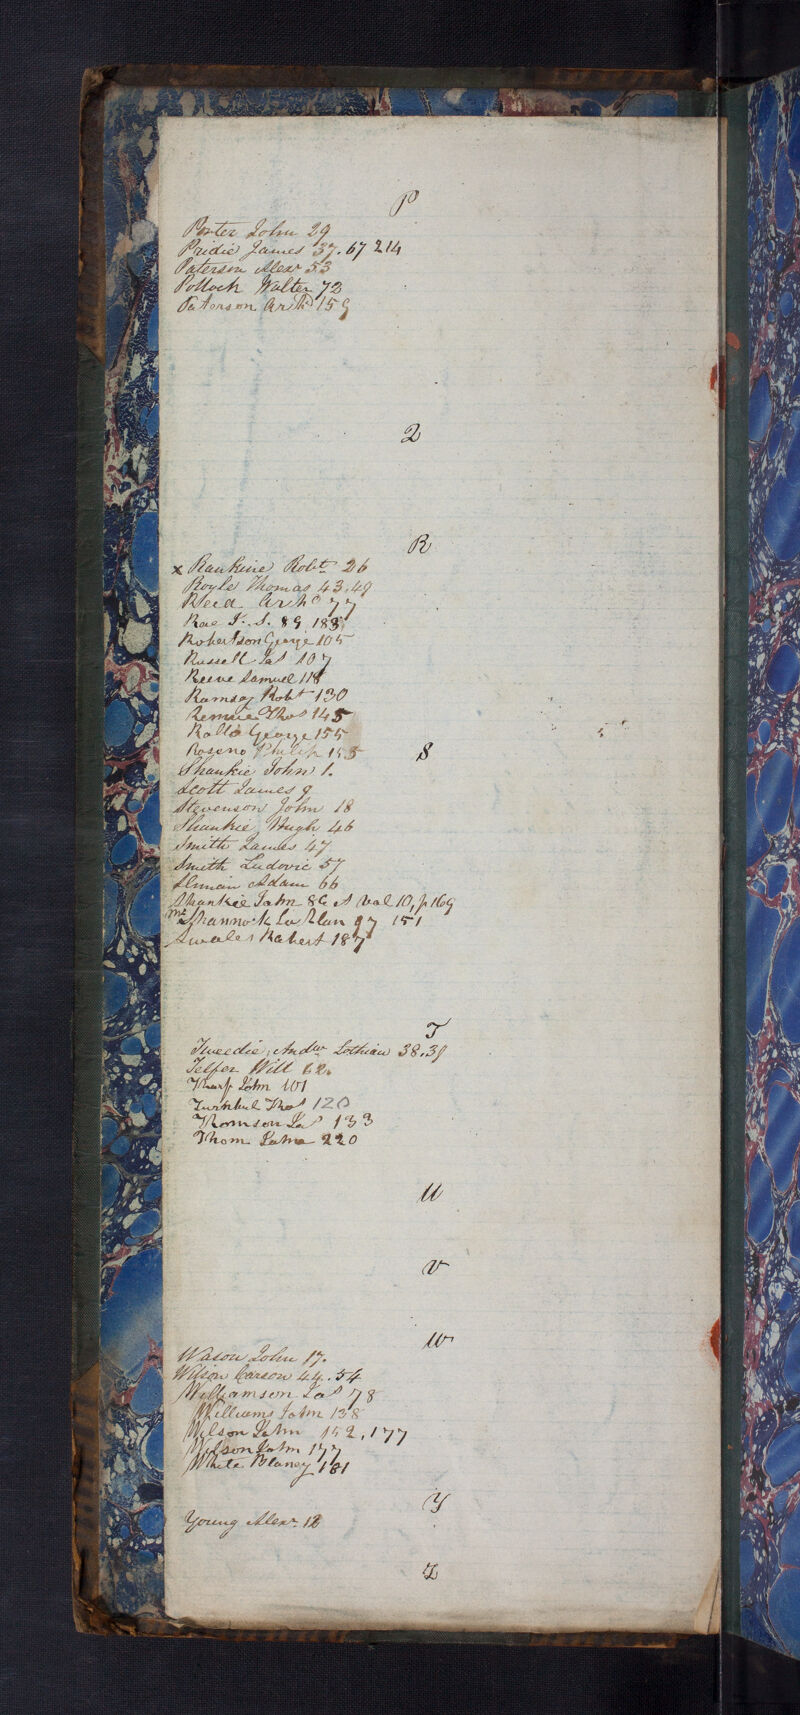 P
Porter John 29
Pridie James 37. 67 214
Paterson Alexr 53
Pollock Walter 73
Paterson Archd 159
Q
R
x Rankine Robt 26
Boyle Thomas 43.49
Reid Archd 77
Rae 89 188
Robertson George 105
Russell Jas 107
Reeve Samuel 118
Ramsay Robt 130
Rennie Thos 145
Rollo George 155
Philip 155
S
Shankie John 1.
Scott James 9
Stevenson John 18
Shankie Hugh 46
Smith James 47
Smith Ludovic 57
Adam 66
Shankie John 86 & Vol 10, p 169
Shannock 97 151
Swales Robert 187
T
Tweedie, Andw Lothian 38.39
Telfer Will 62.
Tharp John 101
Turnbul Thos 120
Thomson Jas 133
Thom 220
U
V
W
Wason John 17.
Wilson Carson 44.54
Williamson Jas 78
Williams John 138
Wilson John 152, 177
Wilson John 177
White Blaney 181
Y
Young Alexr 12
Z